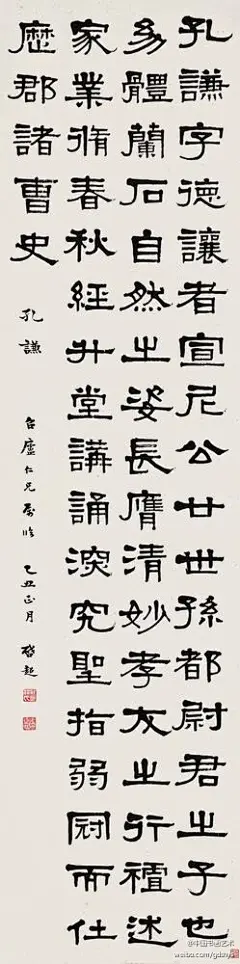 孔謙字德讓者宣尼公廿世孫都尉君之子也
幼體蘭石自然之姿長膺清妙孝友之行禮述
家業脩春秋經升堂講誦深究聖指弱冠而仕
歷郡諸曹史
孔謙
台廬仁兄屬臨 乙丑正月 啓超
@中国书画艺术